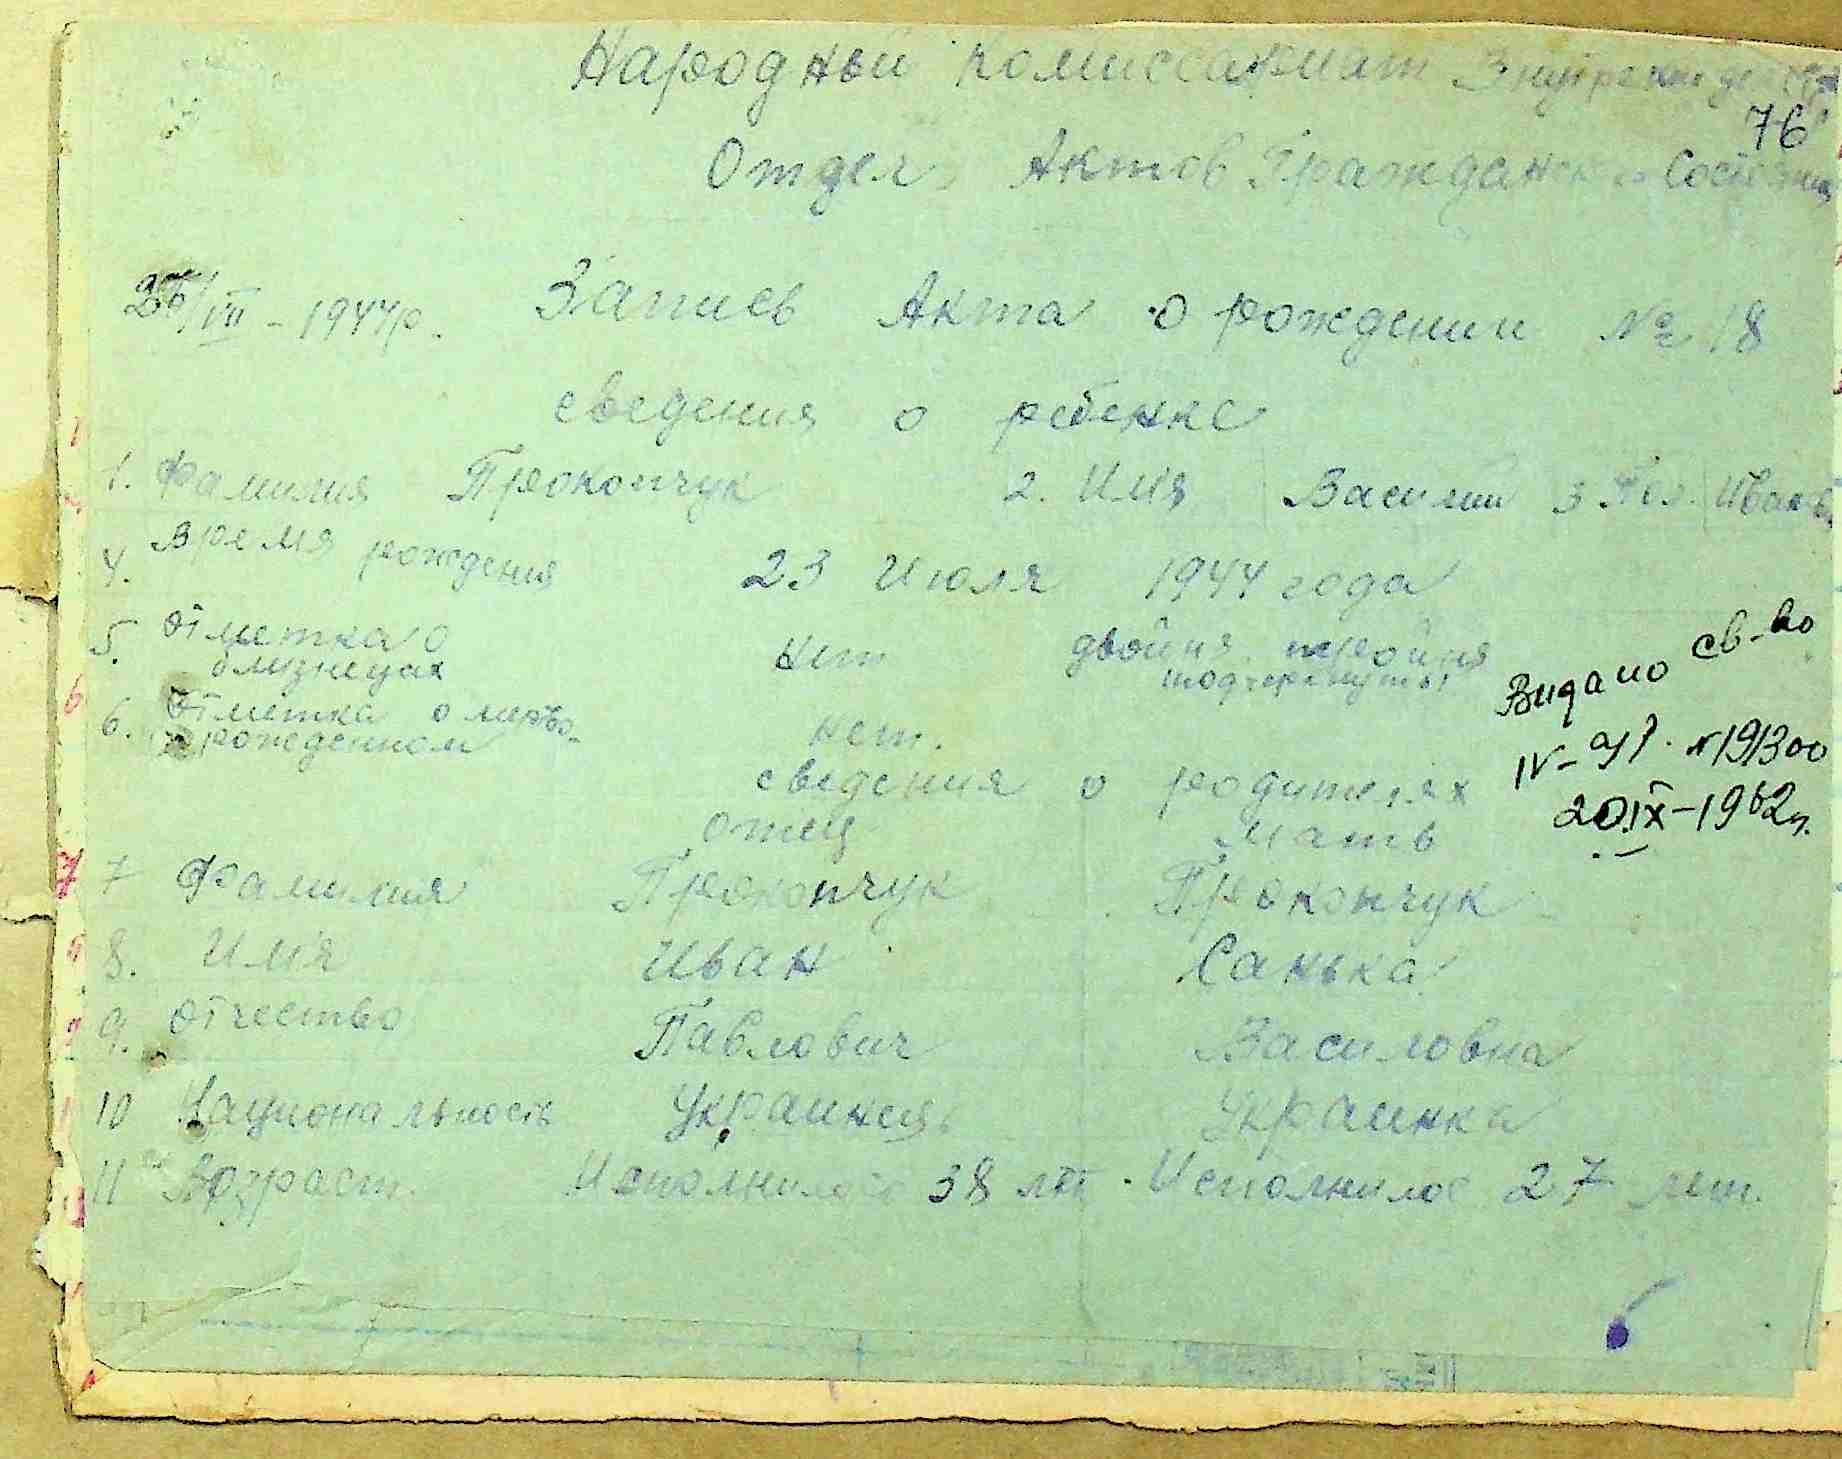 Народный Комиссариат Внутренних дел
76
Отдел Актов Гражданск. Состояния
26/VII - 1944р. Запись Акта о рождении № 18
сведения о ребенке
1. Фамилия Прокопчук 2. Имя Василий 3 Иванов
4. Время рождения 23 Июля 1944 года
5. Отметка о близнецах нет двойня тройня подчеркнуть
6. Отметка о мертво-рожденном нет.
Видано св-во
IV-ЯР. № 191300
20.IX-1962р.
сведения о родителях
отец мать
7 Фамилия Прокопчук Прокопчук
8. Имя Иван Санька
9. Отчество Павлович Василовна
10 Национальность Украинец Украинка
11 Возраст Исполнилось 38 лет. Исполнилос 27 лет.